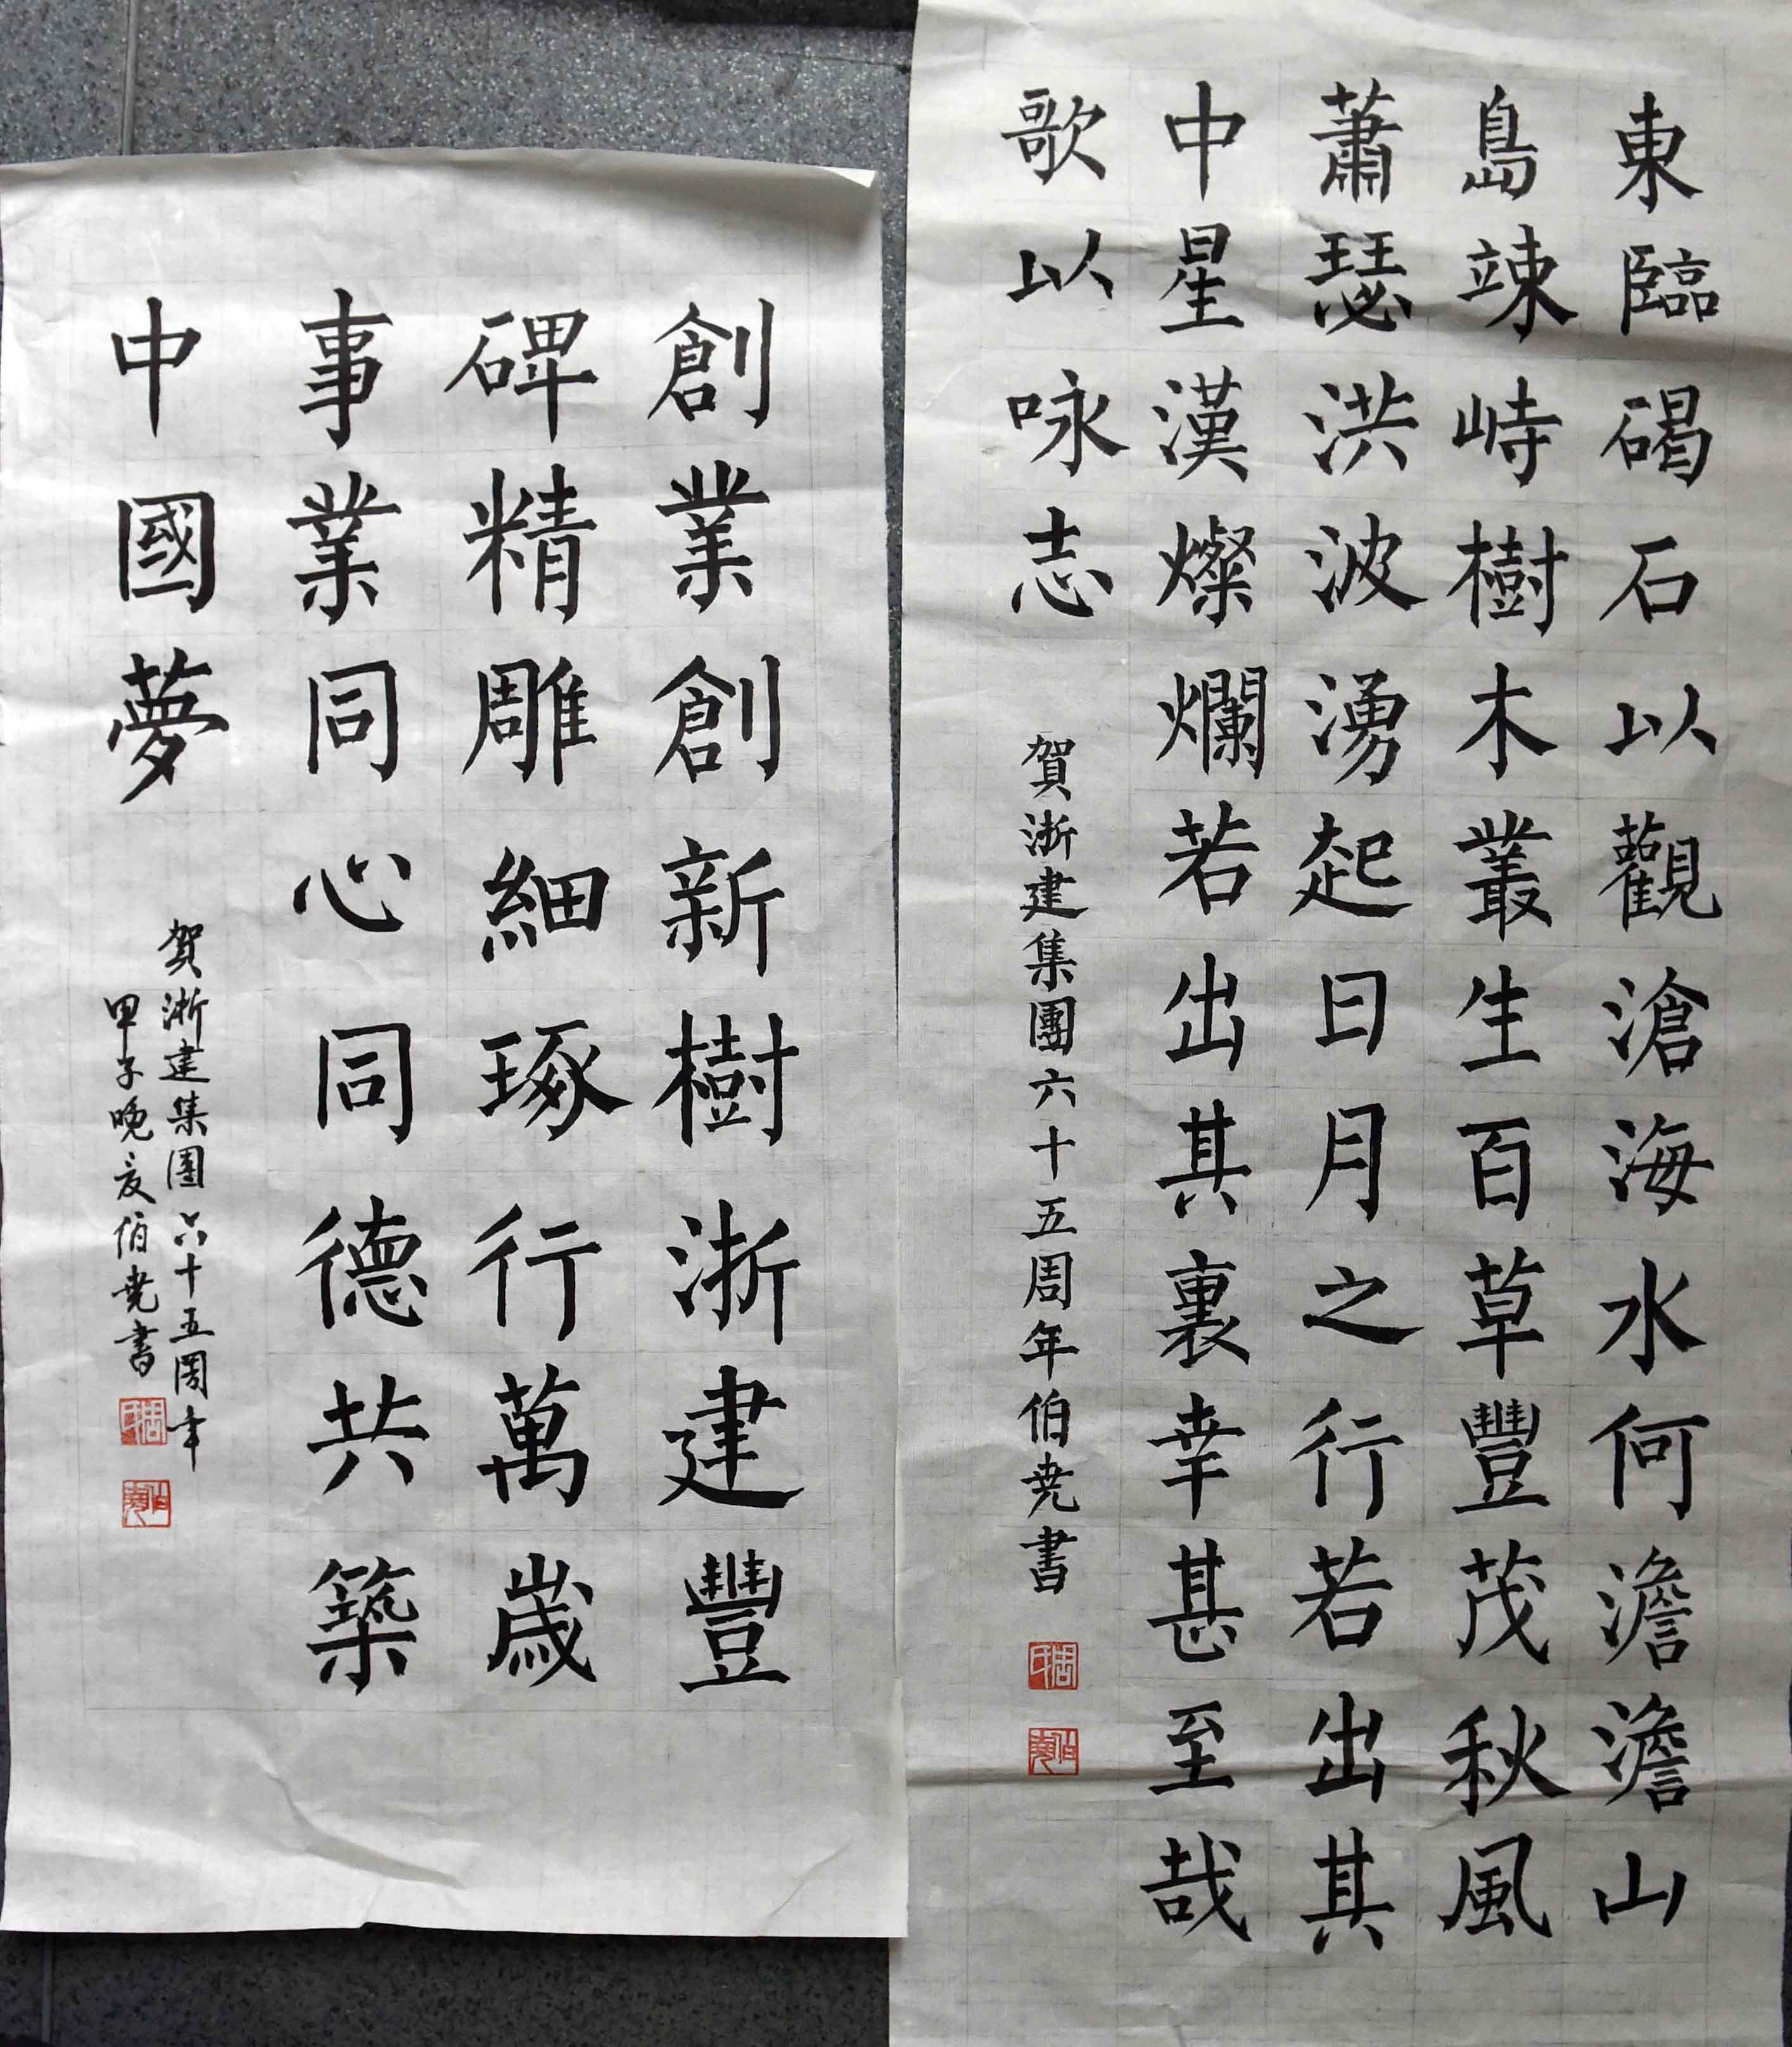 東臨碣石以觀滄海水何澹澹山
島竦峙樹木叢生百草豐茂秋風
蕭瑟洪波湧起日月之行若出其
中星漢燦爛若出其裏幸甚至哉
歌以咏志
賀浙建集團六十五周年伯尭書
周氏
伯堯
創業創新樹浙建豐
碑精雕細琢行萬歲
事業同心同德共築
中國夢
賀浙建集團六十五周年
甲子晚夏伯尭書
周氏
伯堯